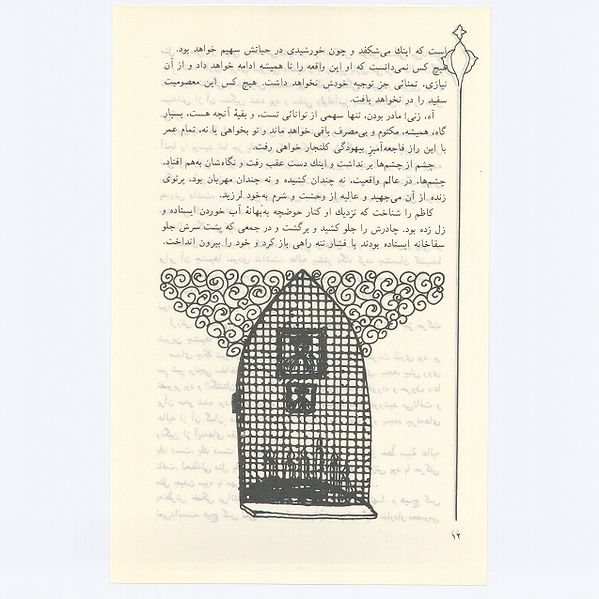 است که اینك می‌شکفد و چون خورشیدی در حیاتش سهیم خواهد بود.
هیچ کس نمی‌دانست که او این واقعه را تا همیشه ادامه خواهد داد و از آن
نیازی، تمنائی جز توجیه خودش نخواهد داشت. هیچ کس این معصومیت
سفید را در نخواهد یافت.
آه، زنی؛ مادر بودن، تنها سهمی از توانائی تست، و بقیهٔ آنچه هست، بسیار
گاه، همیشه، مکتوم و بی‌مصرف باقی خواهد ماند و تو بخواهی یا نه، تمام عمر
با این راز فاجعه‌آمیز بیهودگی کلنجار خواهی رفت.
چشم از چشم‌ها بر نداشت و اینك دست عقب رفت و نگاه‌شان به‌هم افتاد.
چشم‌ها، در عالم واقعیت، نه چندان کشیده و نه چندان مهربان بود. پرتوی
زنده از آن می‌جهید و عالیه از وحشت و شرم به‌خود لرزید.
کاظم را شناخت که نزدیك او کنار حوضچه به‌بهانهٔ آب خوردن ایستاده و
زل زده بود. چادرش را جلو کشید و برگشت و در جمعی که پشت سرش جلو
سقاخانه ایستاده بودند با فشار تنه راهی باز کرد و خود را بیرون انداخت.
۱۲